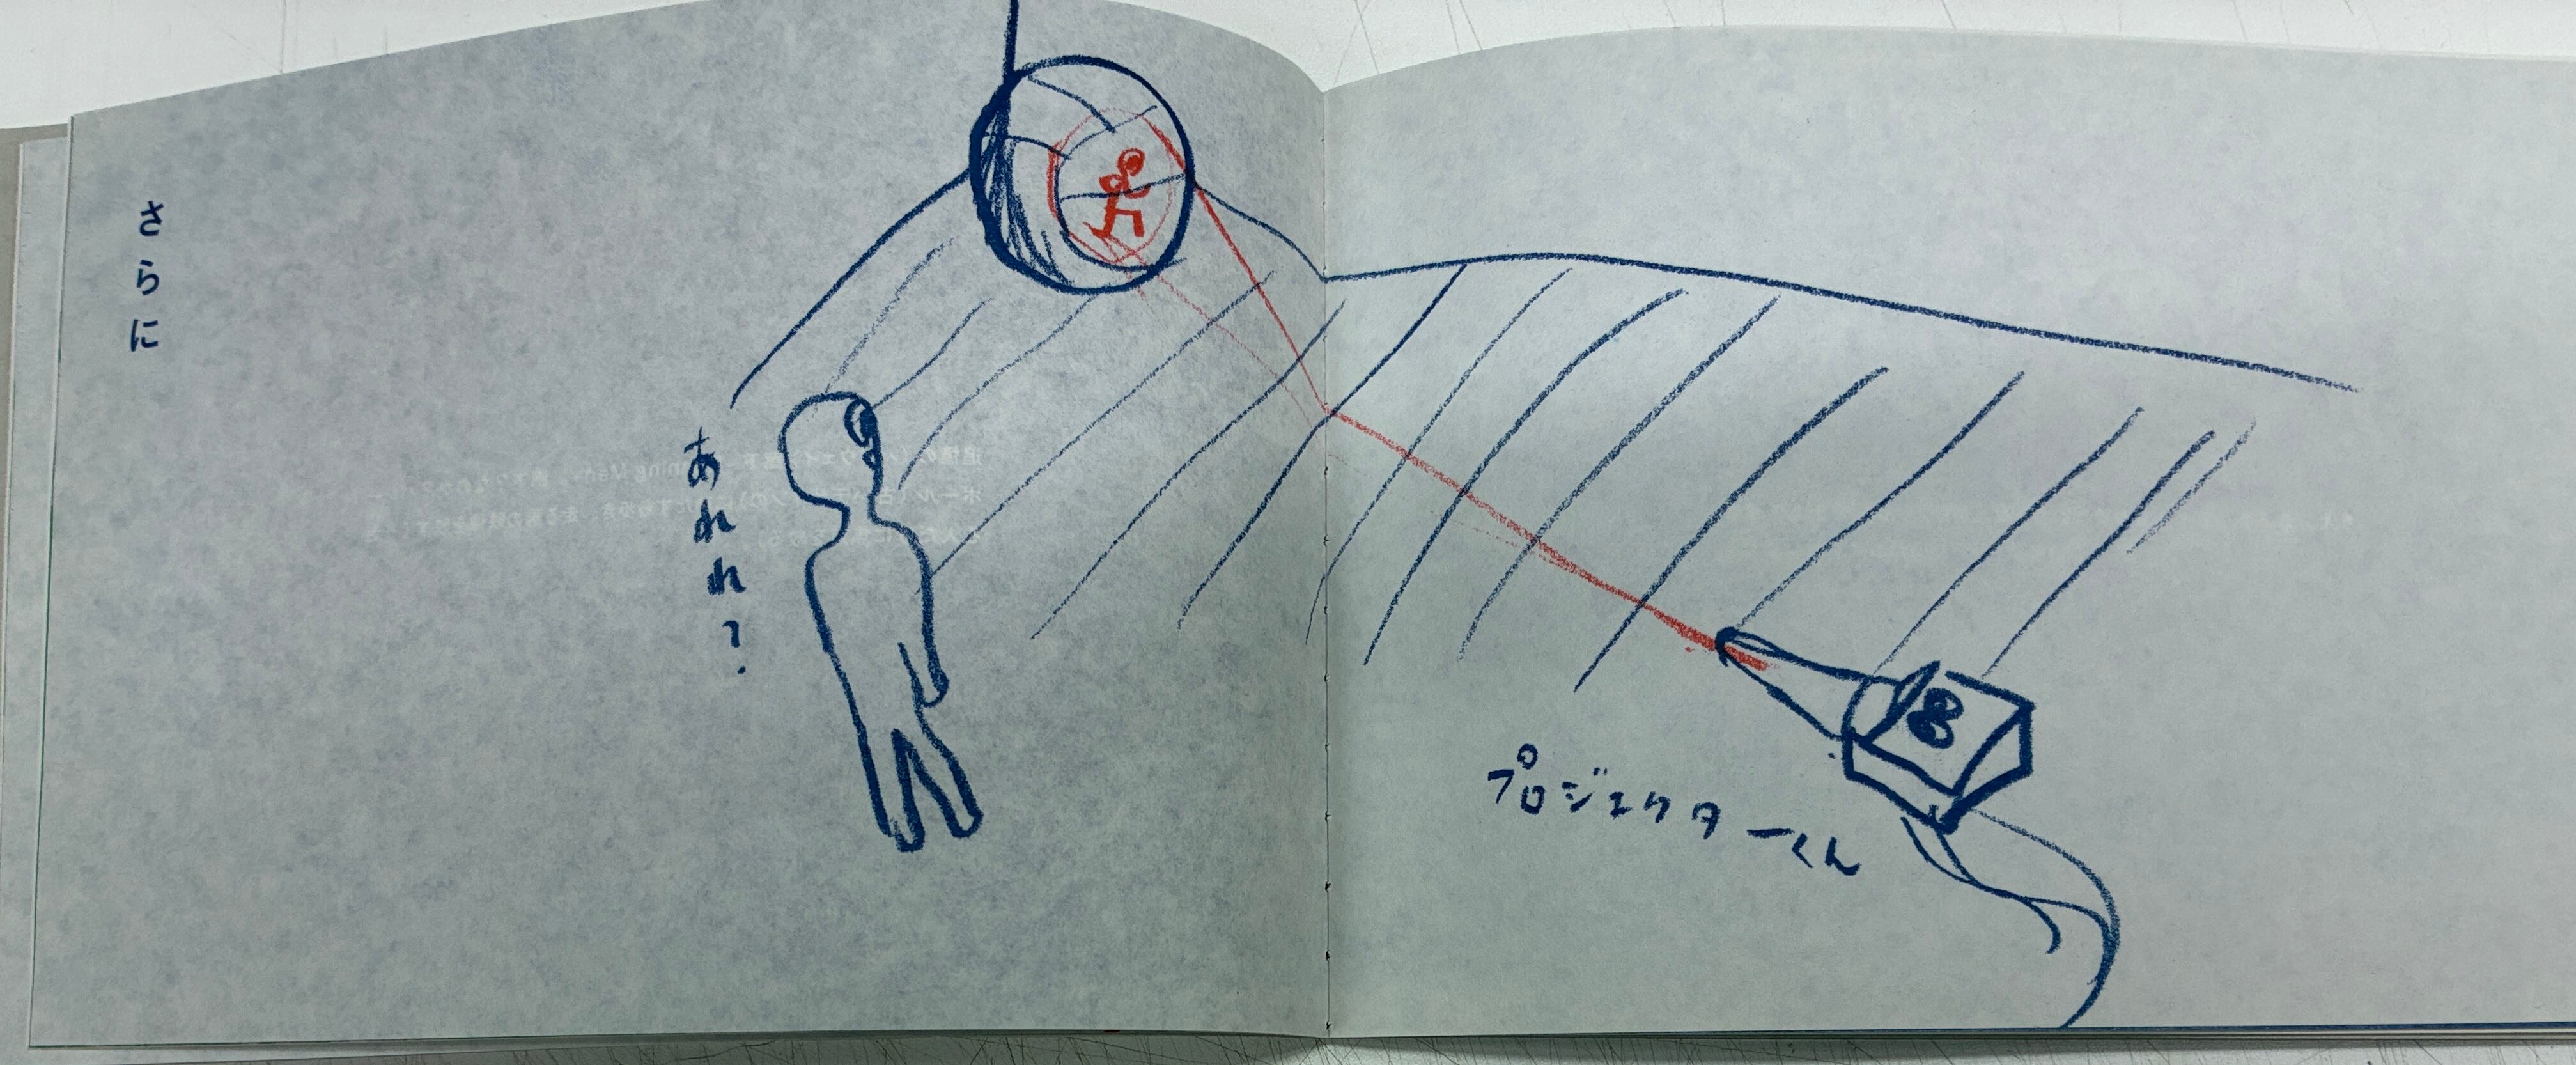 さらに
あれれ?
プロジェクターくん